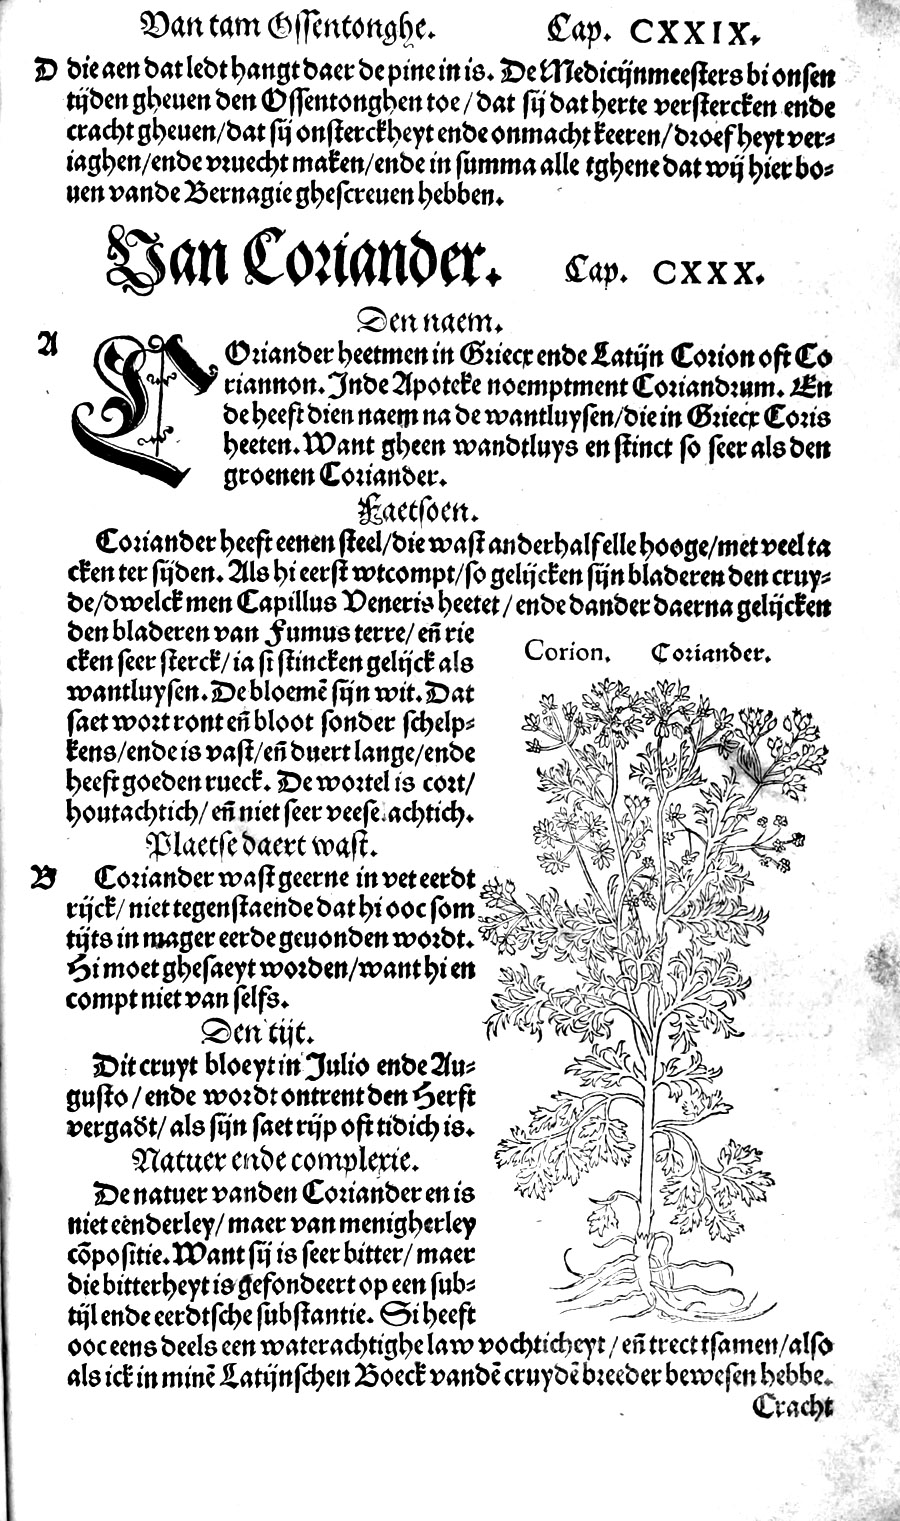 Van tam Ossentonghe. Cap. CXXIX.
D die aen dat ledt hangt daer de pine in is. De Medicijnmeesters bi onsen
tijden gheuen den Ossentonghen toe/dat sij dat herte verstercken ende
cracht gheuen/dat sij onsterckheyt ende onmacht keeren/droefheyt ver⸗
iaghen/ende vruecht maken/ende in summa alle tghene dat wij hier bo⸗
uen vande Bernagie ghescreuen hebben.
Van Coriander. Cap. CXXX.
Den naem.
A COriander heetmen in Griecx ende Latijn Corion oft Co
riannon. Inde Apoteke noemptment Coriandrum. En
de heeft dien naem na de wantluysen/die in Griecx Coris
heeten. Want gheen wandtluys en stinct so seer als den
groenen Coriander.
Faetsoen.
Coriander heeft eenen steel/die wast anderhalf elle hooge/met veel ta
cken ter sijden. Als hi eerst wtcompt/so gelijcken sijn bladeren den cruy⸗
de/dwelck men Capillus Veneris heetet/ende dander daerna gelijcken
den bladeren van Fumus terre/ eñ rie
cken seer sterck/ia si stincken gelijck als
wantluysen. De bloemē sijn wit. Dat
saet wort ront eñ bloot sonder schelp⸗
kens/ende is vast/eñ duert lange/ende
heeft goeden rueck. De wortel is cort/
houtachtich/ eñ niet seer veeseachtich.
Corion. Coriander.
Plaetse daert wast.
B Coriander wast geerne in vet eerdt
rijck/ niet tegenstaende dat hi ooc som
tijts in mager eerde geuonden wordt.
Hi moet ghesaeyt worden/want hi en
compt niet van selfs.
Den tijt.
Dit cruyt bloeyt in Julio ende Au⸗
gusto/ende wordt ontrent den Herfst
vergadt/ als sijn saet rijp oft tidich is.
Natuer ende complexie.
De natuer vanden Coriander en is
niet eenderley/ maer van menigherley
cōpositie. Want sij is seer bitter/ maer
die bitterheyt is gefondeert op een sub⸗
tijl ende eerdtsche substantie. Si heeft
ooc eens deels een waterachtighe law vochticheyt/eñ trect tsamen/also
als ick in minē Latijnschen Boeck vandē cruydē breeder bewesen hebbe.
Cracht